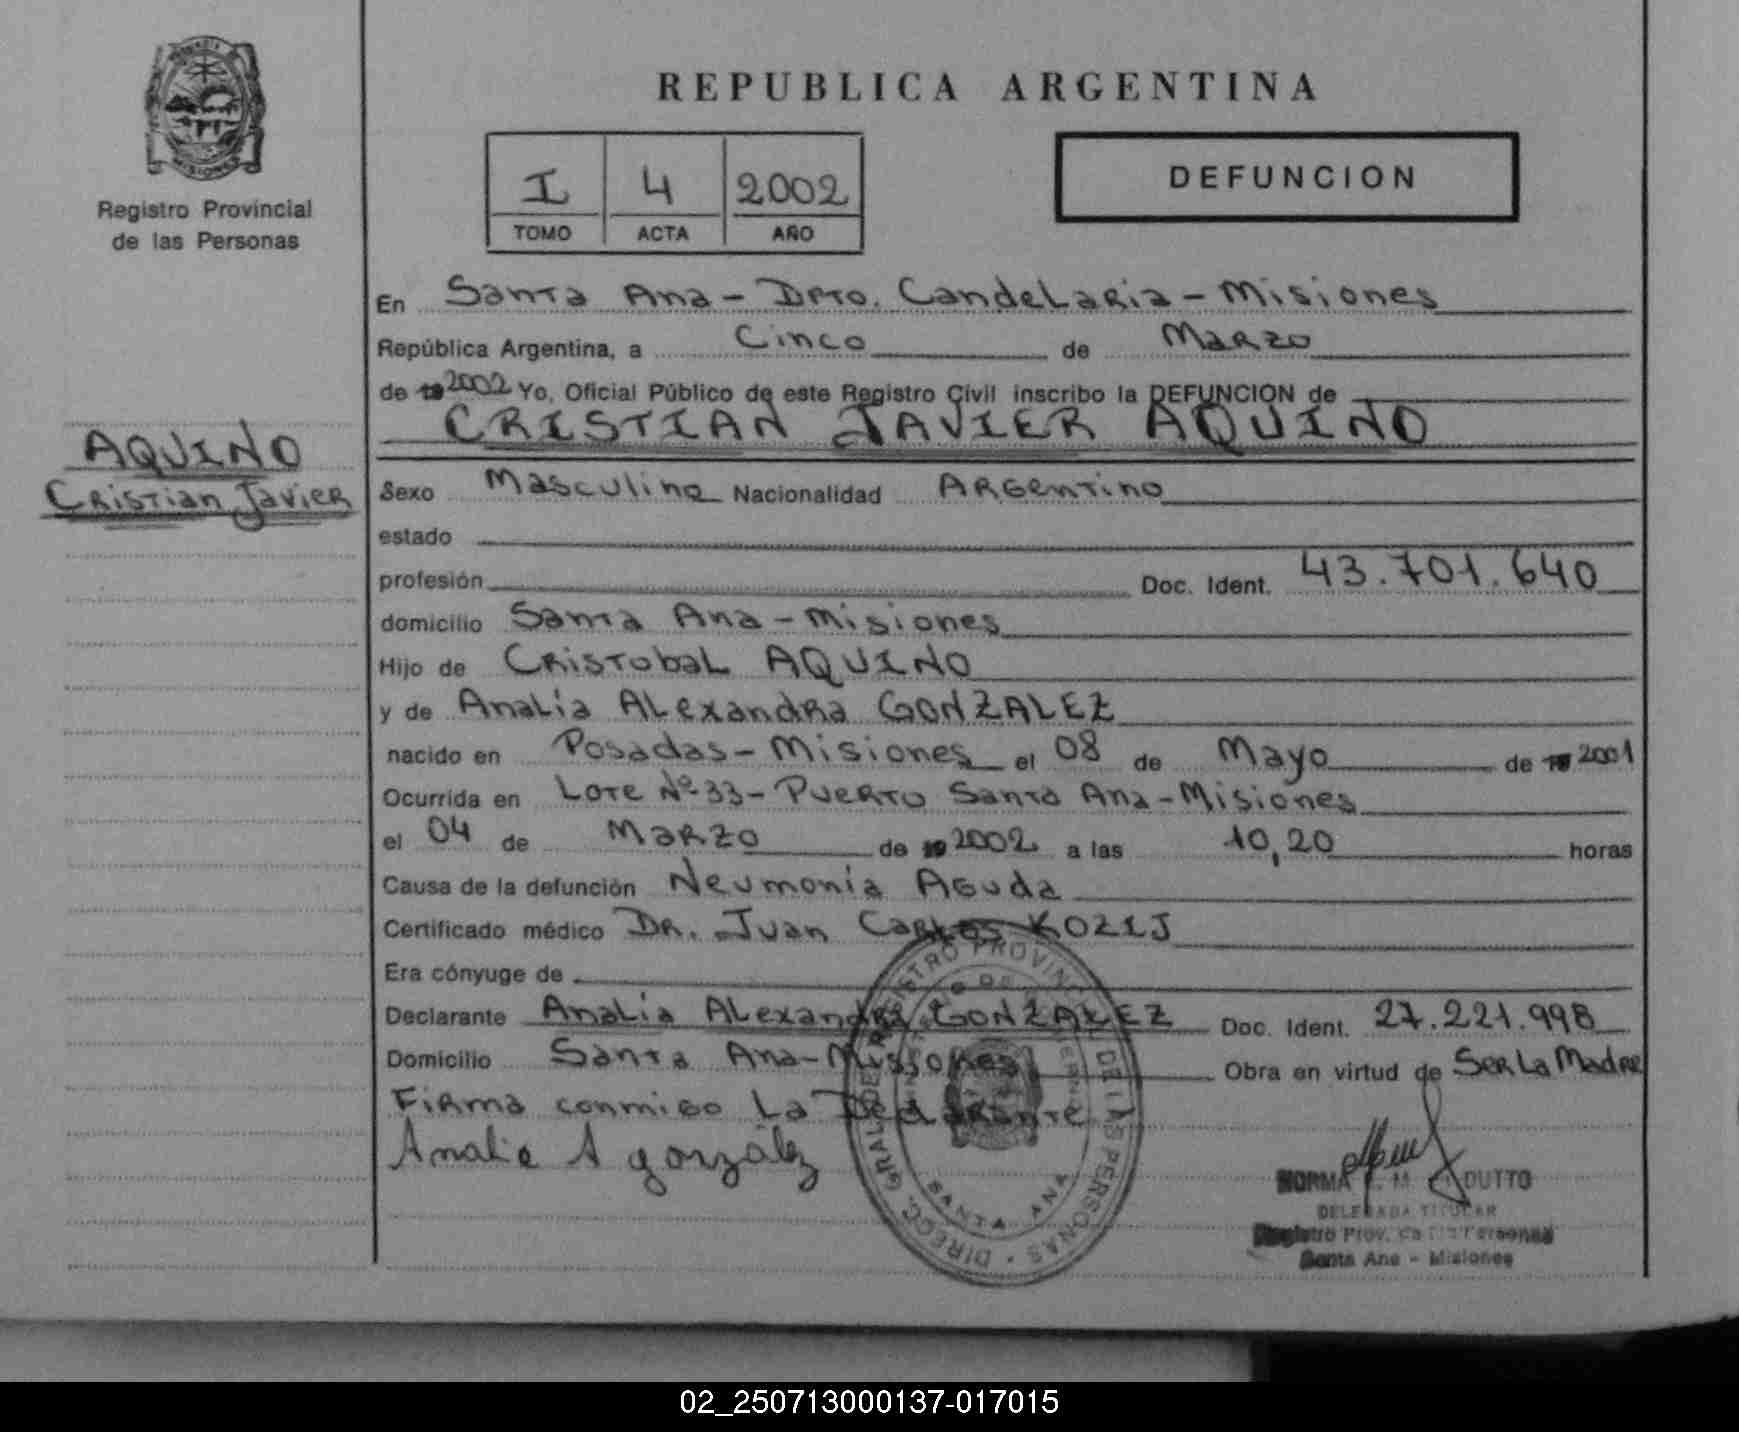 REPUBLICA ARGENTINA
MISIONES
Registro Provincial
de las Personas
I 4 2002
TOMO ACTA AÑO
DEFUNCION
En Santa Ana - Dpto. Candelaria - Misiones
República Argentina, a Cinco de Marzo
de 2002 Yo, Oficial Público de este Registro Civil inscribo la DEFUNCION de
CRISTIAN JAVIER AQUINO
AQUINO
Cristian Javier
Sexo Masculino Nacionalidad Argentino
estado
profesión Doc. Ident. 43.701.640
domicilio Santa Ana - Misiones
Hijo de Cristobal AQUINO
y de Analía Alexandra GONZALEZ
nacido en Posadas - Misiones el 08 de Mayo de 2001
Ocurrida en Lote Nº 33 - Puerto Santa Ana - Misiones
el 04 de Marzo de 2002 a las 10,20 horas
Causa de la defunción Neumonía Aguda
Certificado médico Dr. Juan Carlos KOZIJ
Era cónyuge de
Declarante Analía Alexandra GONZALEZ Doc. Ident. 27.221.998
Domicilio Santa Ana - Misiones Obra en virtud de Ser La Madre
Firma conmigo La Declarante
Analia A gonzález
DIRECC. GRAL. DE REGISTRO PROVINCIAL DE LAS PERSONAS
SANTA ANA
NORMA M. DUTTO
DELEGADA TITULAR
Registro Prov. de las Personas
Santa Ana - Misiones
02_250713000137-017015